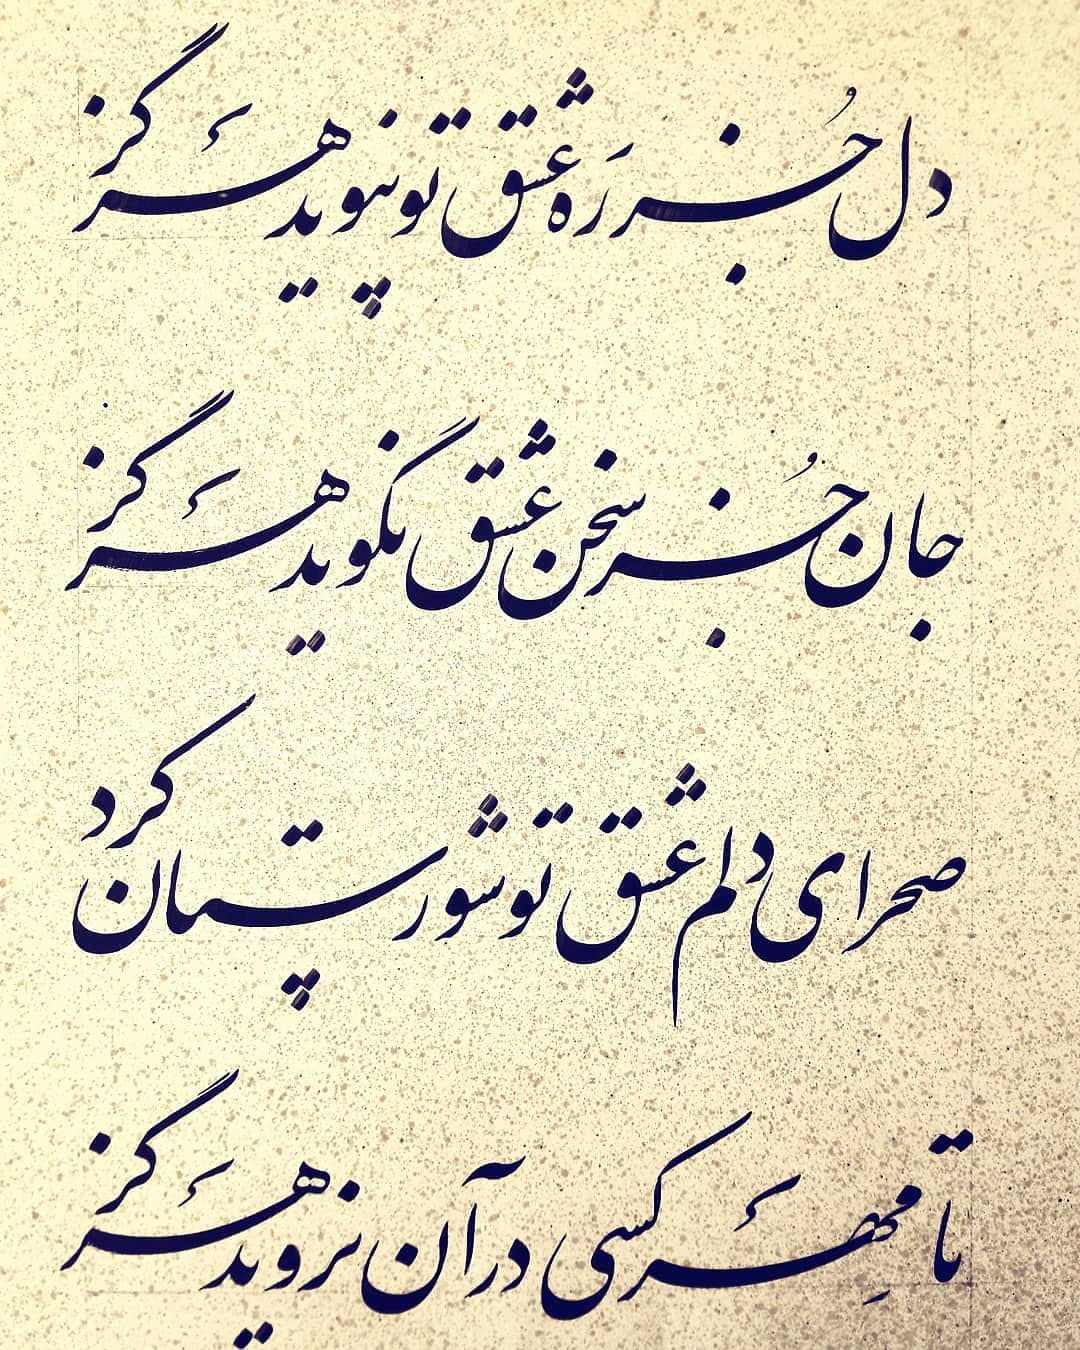 دل جُز رَه عشق تو نپوید هرگز
جان جُز سخن عشق نگوید هرگز
صحرای دلم عشق تو شورستان کرد
تا مِهر کسی در آن نروید هرگز